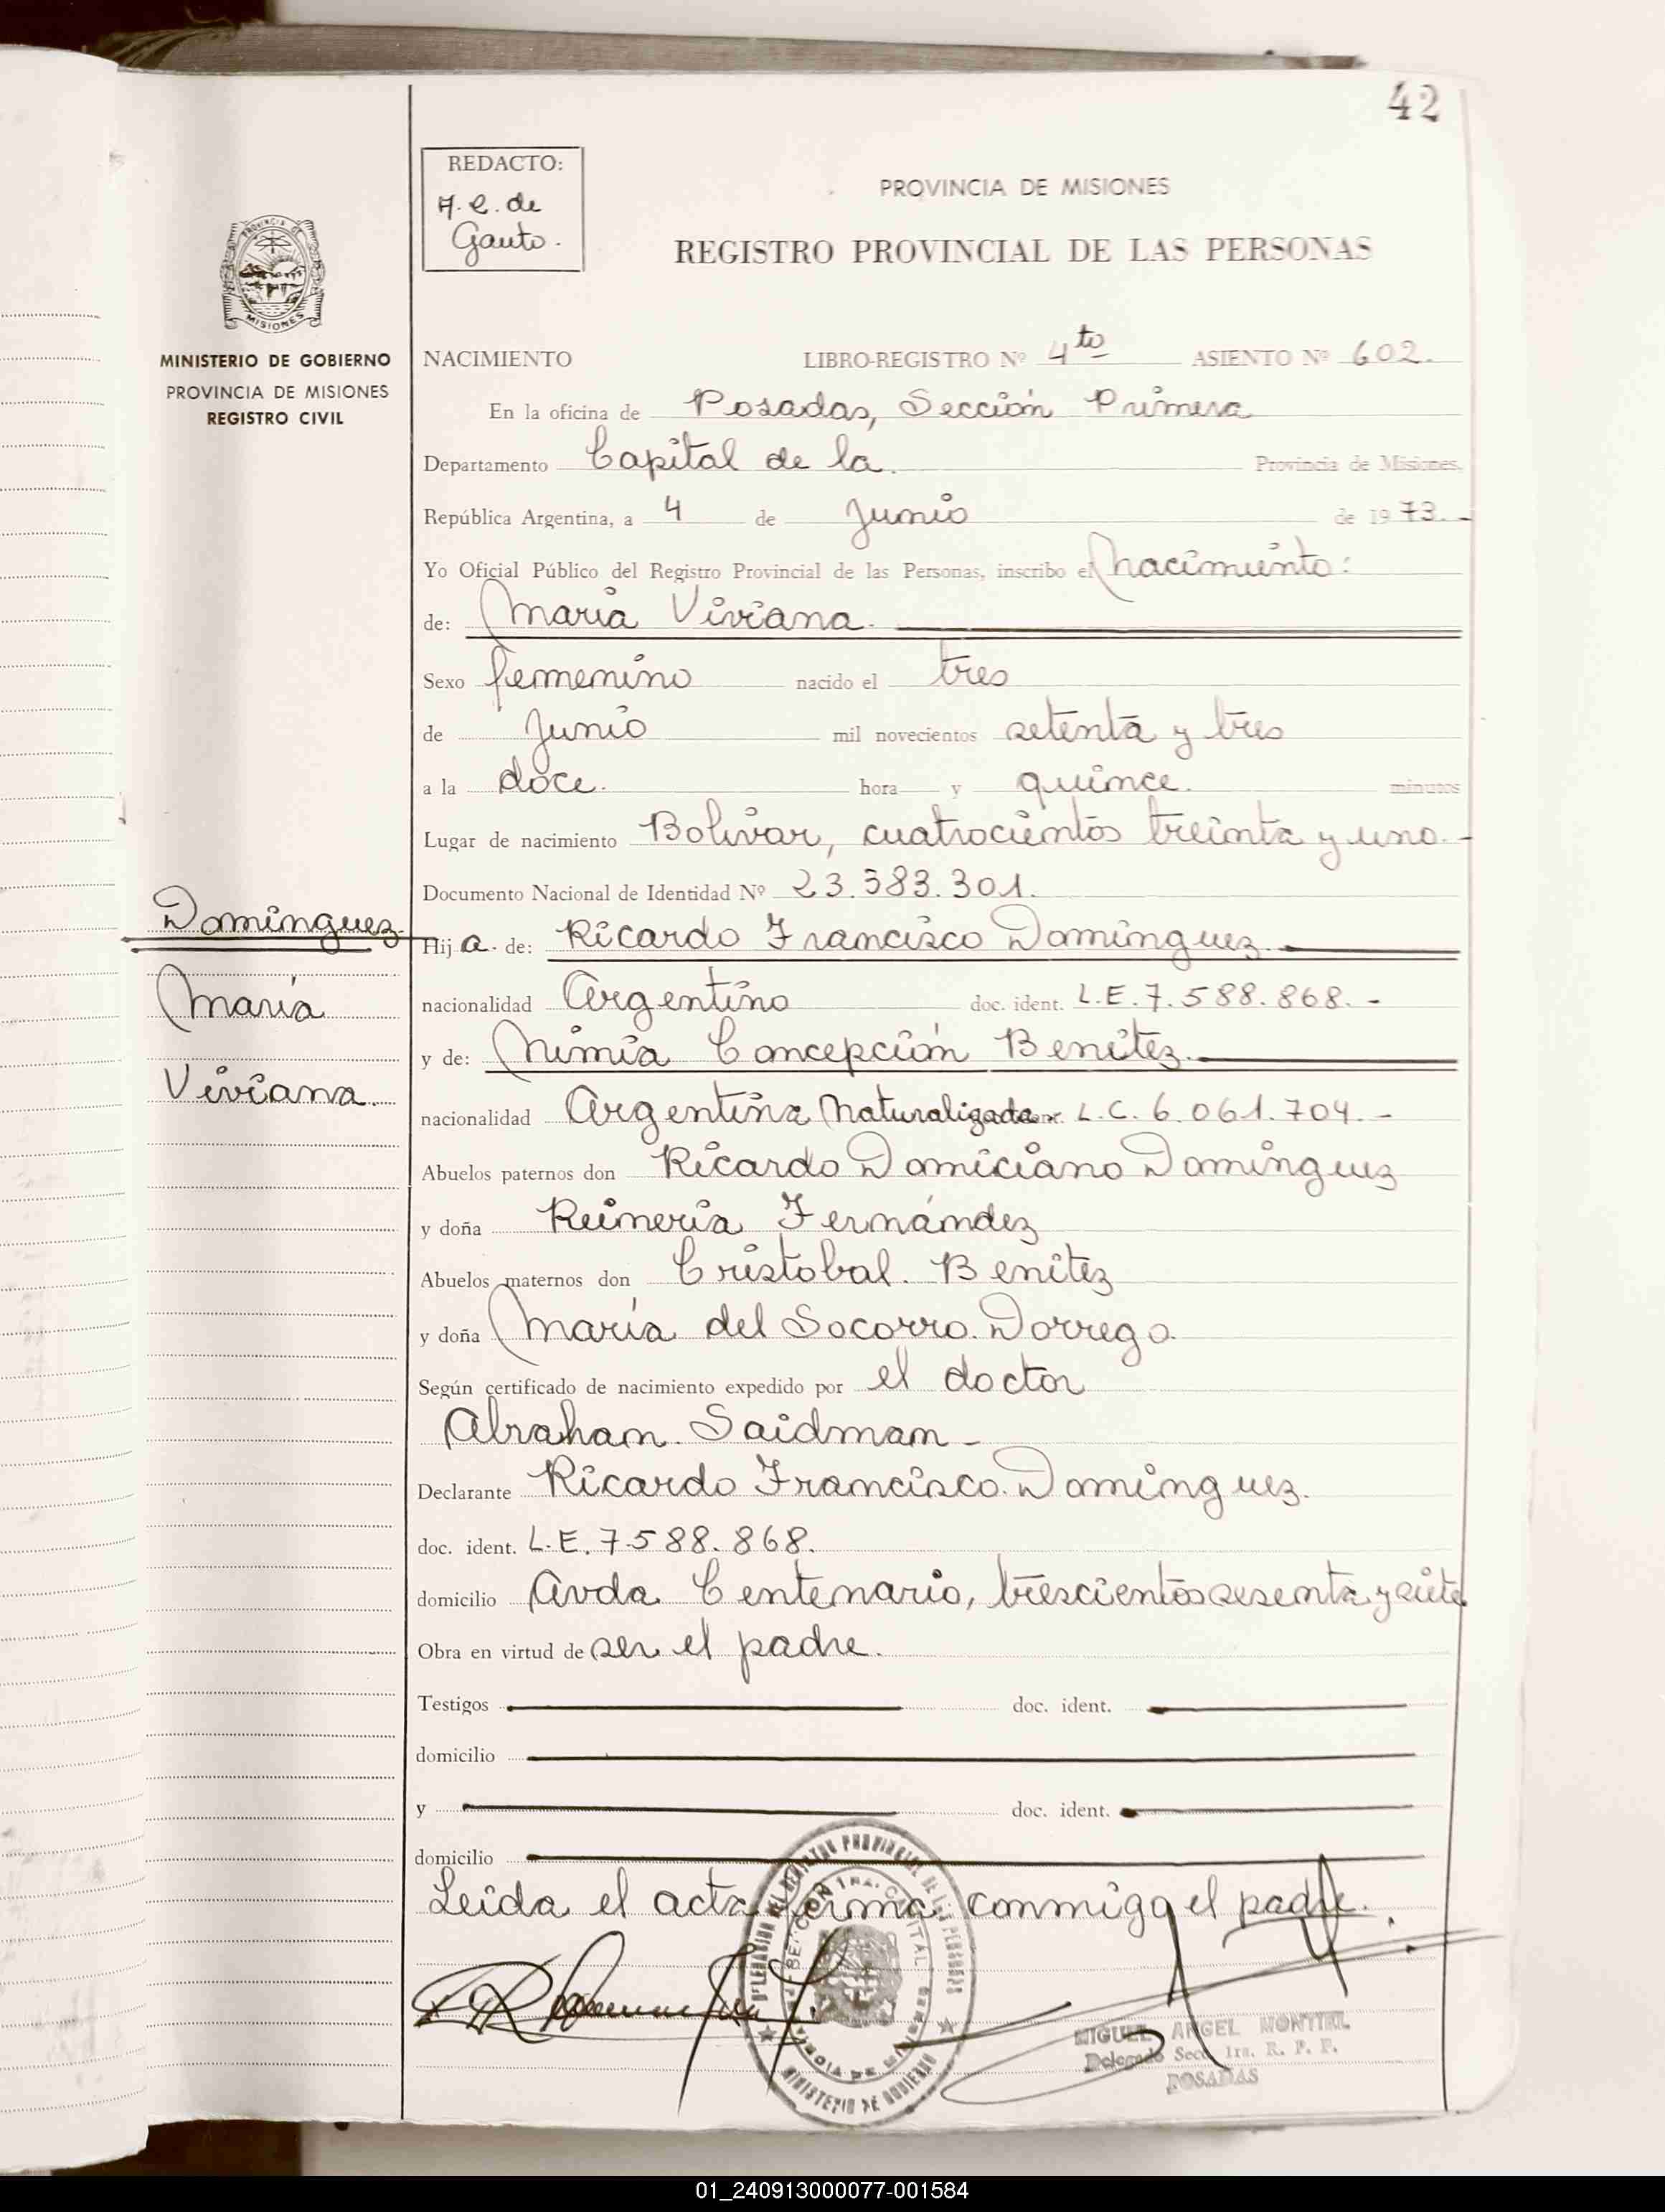 42
REDACTO:
Gauto.
PROVINCIA DE MISIONES
REGISTRO PROVINCIAL DE LAS PERSONAS
MISIONES
MINISTERIO DE GOBIERNO
PROVINCIA DE MISIONES
REGISTRO CIVIL
NACIMIENTO LIBRO-REGISTRO Nº 4to ASIENTO Nº 602.
En la oficina de Posadas, Sección Primera
Departamento Capital de la. Provincia de Misiones,
República Argentina, a 4 de Junio de 1973.-
Yo Oficial Público del Registro Provincial de las Personas, inscribo el Nacimiento:
de: María Viviana.
Sexo femenino nacido el tres
de Junio mil novecientos setenta y tres
a la doce. hora y quince. minutos
Lugar de nacimiento Bolivar, cuatrocientos treinta y uno.-
Documento Nacional de Identidad Nº 23.383.301.
Dominguez
María
Viviana.
Hija de: Ricardo Francisco Dominguez.
nacionalidad Argentino doc. ident. L.E.7.588.868.-
y de: Nimia Concepción Benitez.
nacionalidad Argentina Naturalizada L.C. 6.061.704.-
Abuelos paternos don Ricardo Domiciano Dominguez
y doña Reineria Fernández
Abuelos maternos don Cristobal. Benitez
y doña María del Socorro. Dorrego.
Según certificado de nacimiento expedido por el doctor
Abraham. Saidman-
Declarante Ricardo Francisco. Dominguez.
doc. ident. L.E. 7.588.868.
domicilio Avda Centenario, trescientos sesenta y siete
Obra en virtud de ser el padre.
Testigos doc. ident.
domicilio
y doc. ident.
domicilio
Leida el acta firma conmigo el padre.
MINISTERIO DE GOBIERNO
MIGUEL ANGEL MONTIEL
Delegado Secc. 1ra. R. P. P.
POSADAS
01_240913000077-001584